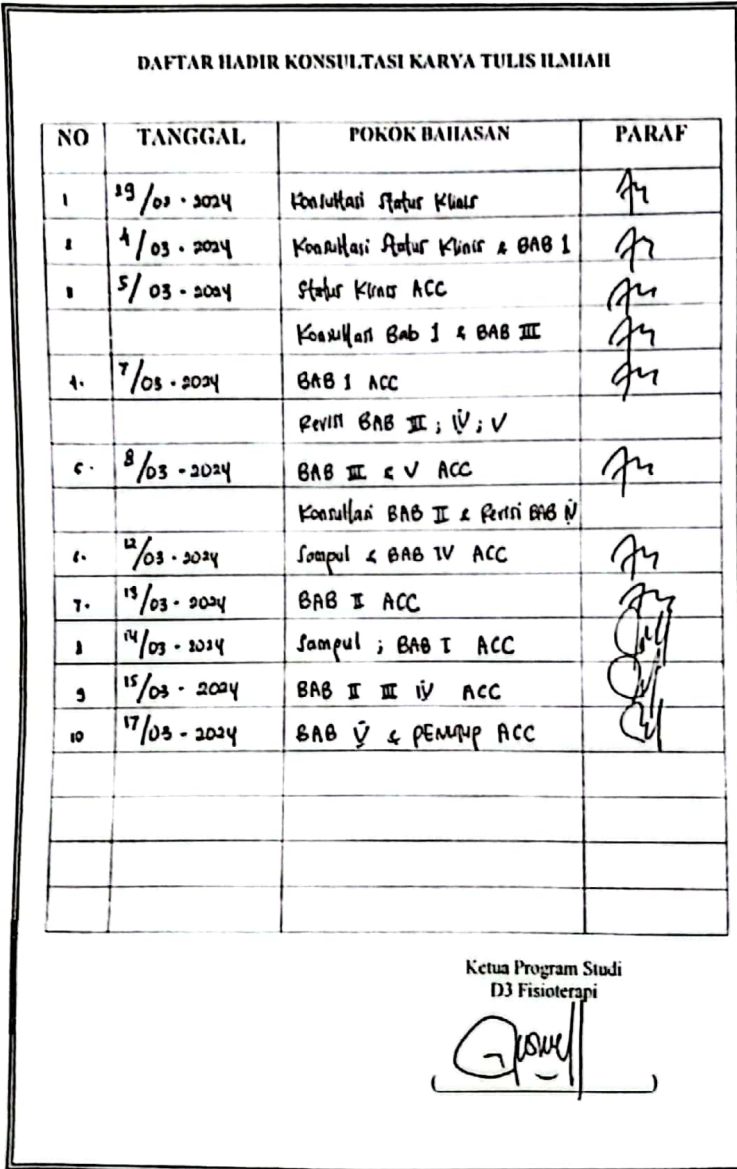 DAFTAR HADIR KONSULTASI KARYA TULIS ILMIAH
NO TANGGAL POKOK BAHASAN PARAF
1 29/02 - 2024 Konsultasi Status Klinis
2 4/03 - 2024 Konsultasi Status Klinis & BAB 1
3 5/03 - 2024 Status Klinis ACC
Konsultasi Bab 1 & BAB III
4. 7/03 - 2024 BAB 1 ACC
Revisi BAB III ; IV ; V
5. 8/03 - 2024 BAB III & V ACC
Konsultasi BAB II & Revisi BAB IV
6. 12/03 - 2024 Sampul & BAB IV ACC
7. 13/03 - 2024 BAB II ACC
8 14/03 - 2024 Sampul ; BAB I ACC
9 15/03 - 2024 BAB II III IV ACC
10 17/03 - 2024 BAB V & PENUTUP ACC
Ketua Program Studi
D3 Fisioterapi